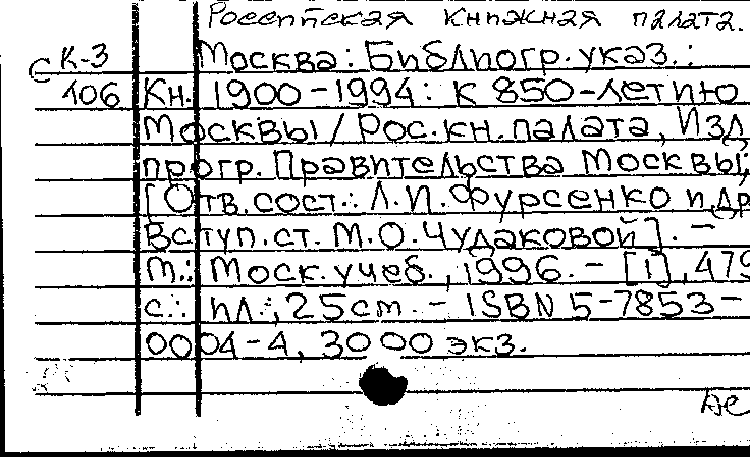 Российская книжная палата.
С К-3 Москва: Библиогр. указ.:
106 Кн. 1900-1994: к 850-летию
Москвы / Рос. кн. палата, Изд.
прогр. Правительства Москвы;
[Отв. сост.: Л.И. Фурсенко и др.
Вступ. ст. М.О. Чудаковой]. -
М.: Моск. учеб., 1996. - [1], 479
с.: ил.; 25 см. - ISBN 5-7853-
0004-4, 3000 экз.